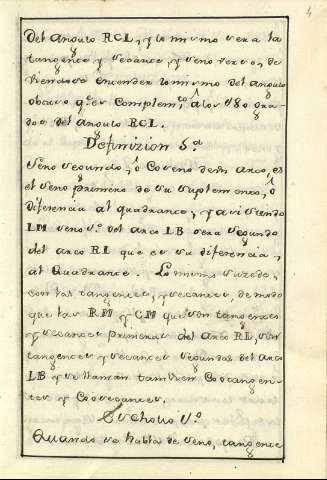 4
del angulo RCL, y lo mismo sera la
tangente y secante, y seno verso, de
viendose entender lo mismo del angulo
obtuso q.e es complem.to â los 180 gra-
dos del angulo RCL.
Definizion 5a
Seno segundo, ô Coseno de un arco, es
el seno primero de su suplemento, ô
diferencia al quadrante, y asi siendo
LM seno 1o del arco LB sera segundo
del arco RL que es su diferencia,
al Quadrante. Lo mismo suzede,
con las tangentes, y secantes, de modo
que las RM y CM que son tangentes
y secantes primeras del arco RL, son
tangentes y secantes segundas del arco
LB y se llaman tambien Cotangen-
tes y Cosecantes.
Scholio 1o
Quando se habla de seno, tangente